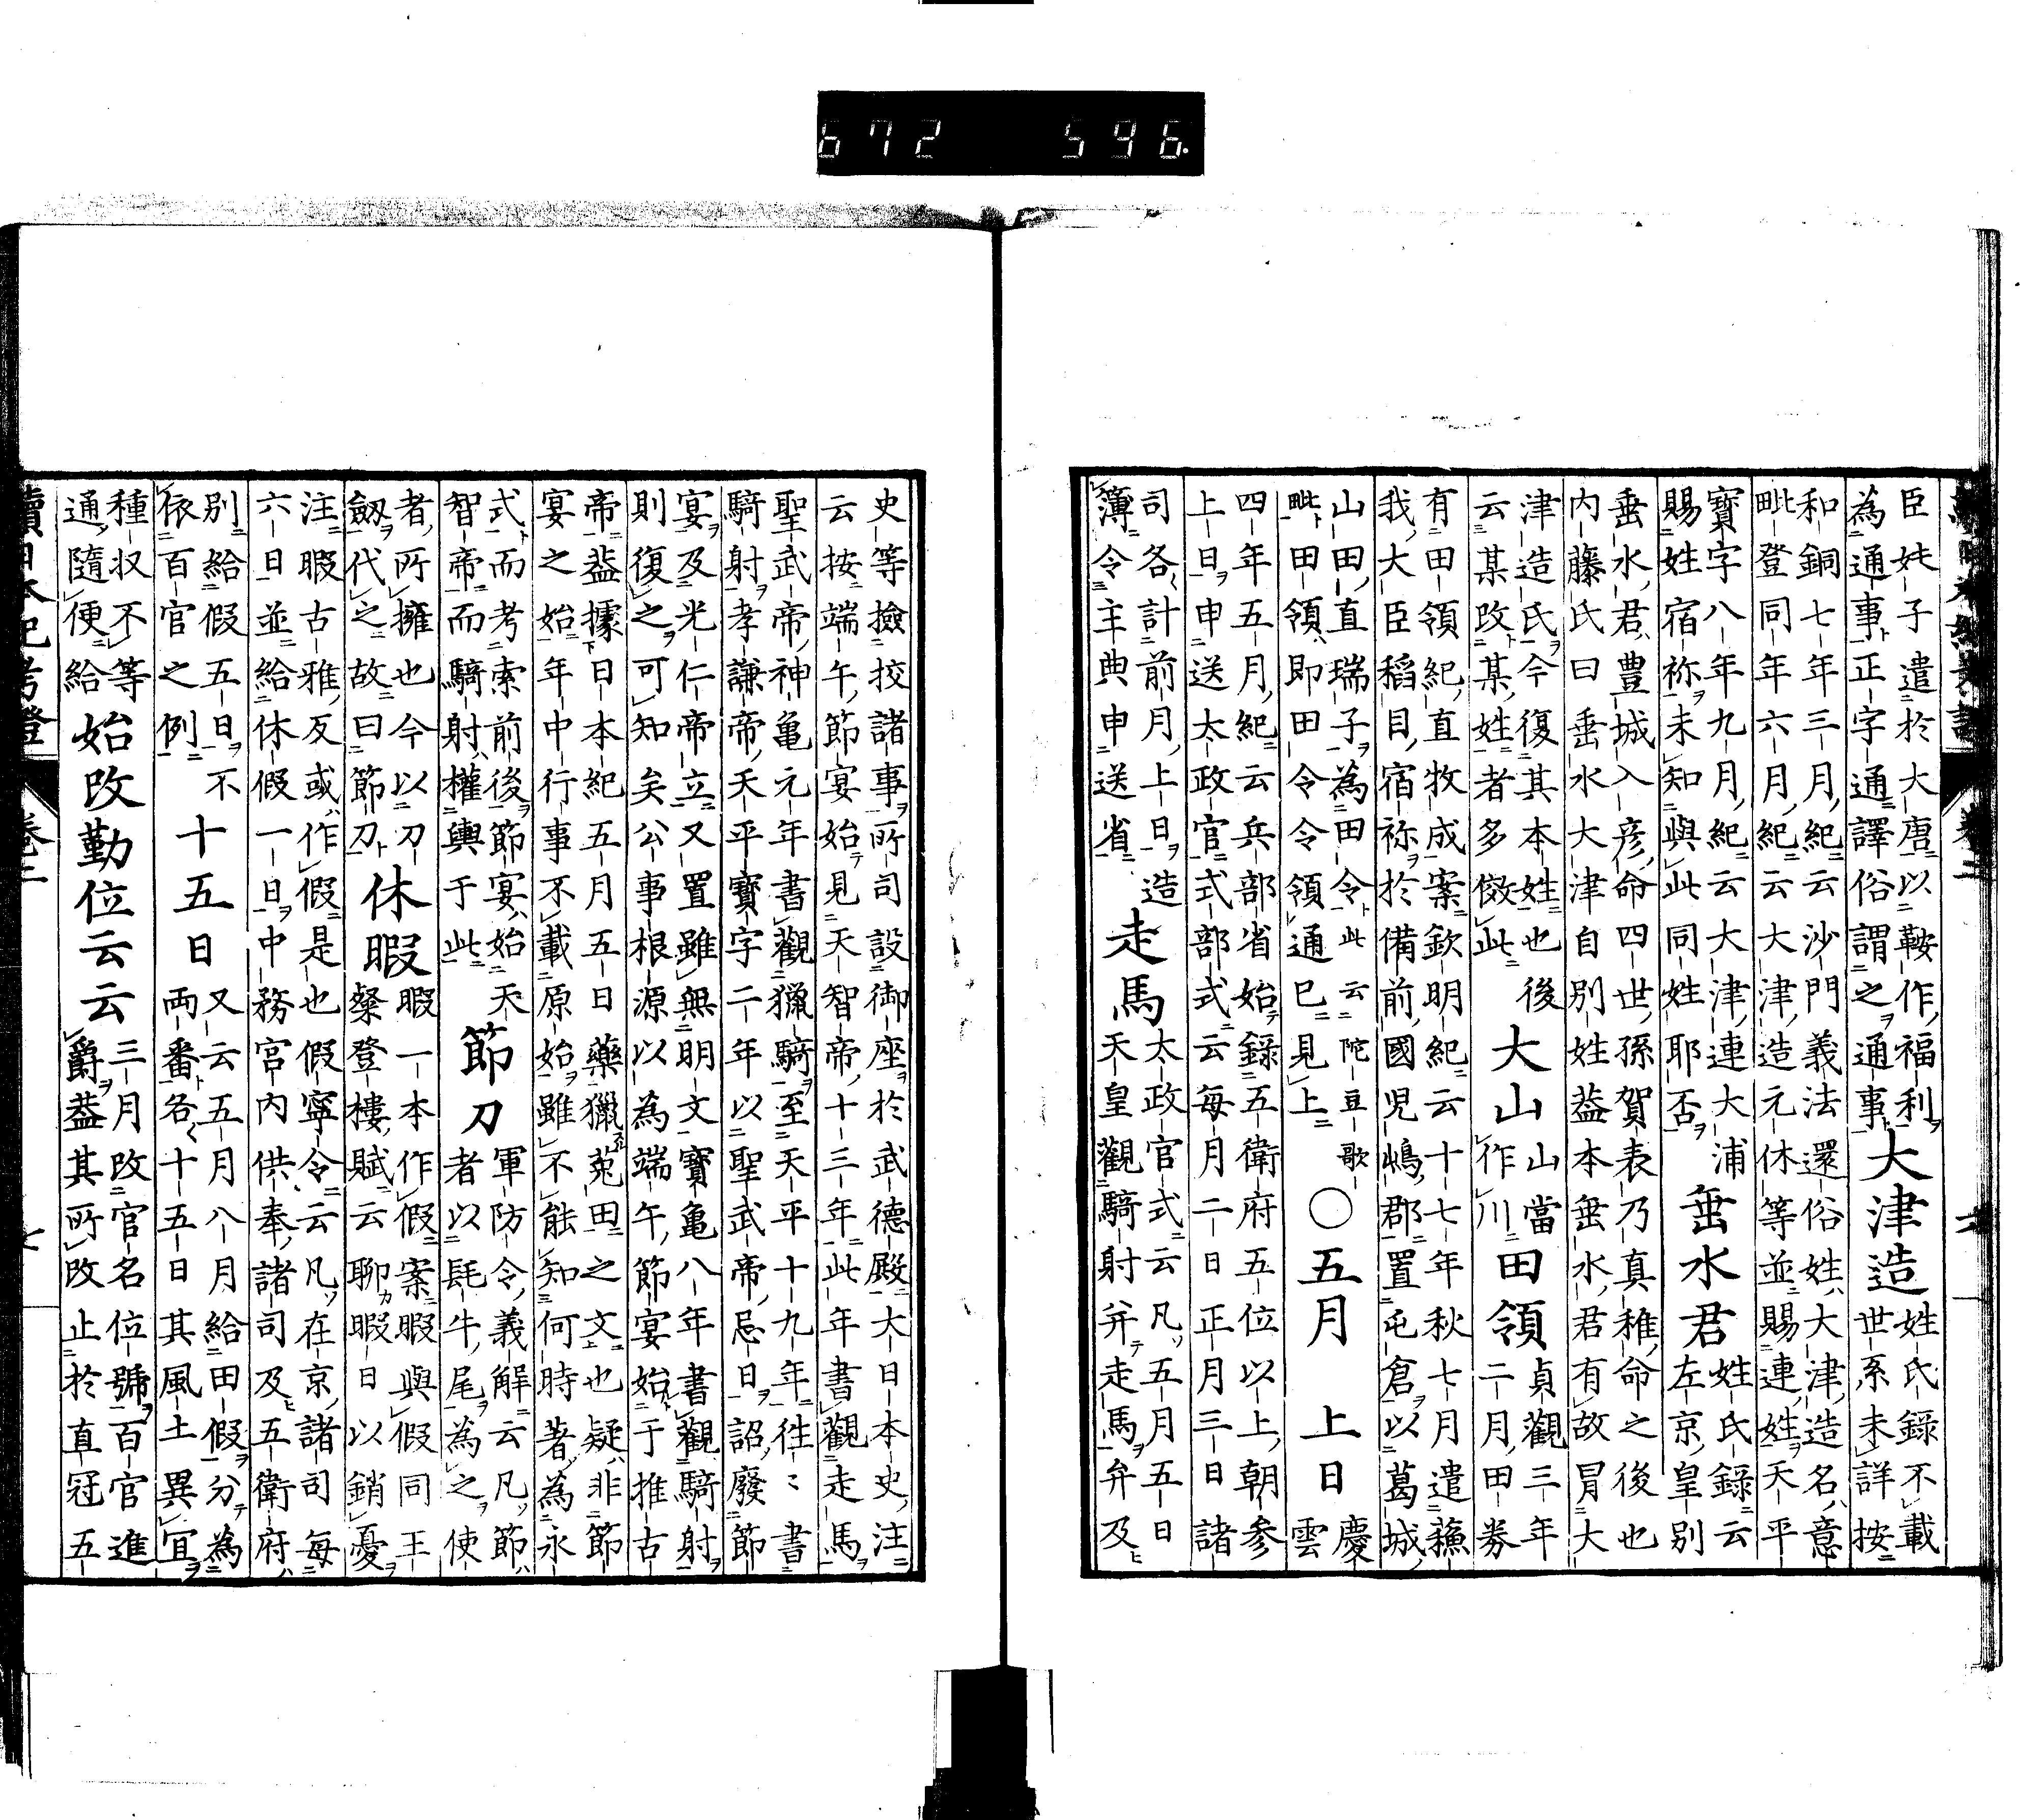 672 596.
臣姓子遣於大唐以鞍作福利
為通事正字通譯俗謂之通事
大津造
姓氏錄不載
世系未詳按
和銅七年三月紀云沙門義法還俗姓大津造名意
毗登同年六月紀云大津造元休等並賜連姓天平
寶字八年九月紀云大津連大浦
賜姓宿祢未知與此同姓耶否
垂水君
姓氏錄云
左京皇別
垂水君豊城入彦命四世孫賀表乃真稚命之後也
内藤氏曰垂水大津自別姓益本垂水君有故冒大
津造氏今復其本姓也後
云某改某姓者多倣此
大山
山當
作川
田領
貞觀三年
二月田券
有田領紀直牧成案欽明紀云十七年秋七月遣蘓
我大臣稻目宿祢於備前國児嶋郡置屯倉以葛城
山田直瑞子為田令此云陀豆歌
毗田領即田令令領通已見上
○五月
上日
慶
雲
四年五月紀云兵部省始錄五衛府五位以上朝参
上日申送太政官式部式云每月二日正月三日諸
司各計前月上日造
簿令主典申送省
走馬
太政官式云凡五月五日
天皇觀騎射并走馬弁及
史等撿挍諸事所司設御座於武德殿大日本史注
云按端午節宴始見天智帝十三年此年書觀走馬
聖武帝神亀元年書觀獵騎至天平十九年徃〻書
騎射孝謙帝天平寶字二年以聖武帝忌日詔廢節
宴及光仁帝立又置雖無明文寶亀八年書觀騎射
則復之可知矣公事根源以為端午節宴始于推古
帝葢據日本紀五月五日藥獵菟田之文也疑非節
宴之始年中行事不載原始雖不能知何時著為永
式而考索前後節宴始天
智帝而騎射權輿于此
節刀
軍防令義解云凡節
者以髦牛尾為之使
者所擁也今以刀
劔代之故曰節刀
休暇
暇一本作假案暇與假同王
粲登樓賦云聊暇日以銷憂
注暇古雅反或作假是也假寧令云凡在京諸司每
六日並給休假一日中務宮内供奉諸司及五衛府
別給假五日不
依百官之例
十五日
又云五月八月給田假分為
両番各十五日其風土異宜
種収不等
通隨便給
始改勤位云云
三月改官名位號百官進
爵葢其所改止於直冠五
續日本紀考證
卷二